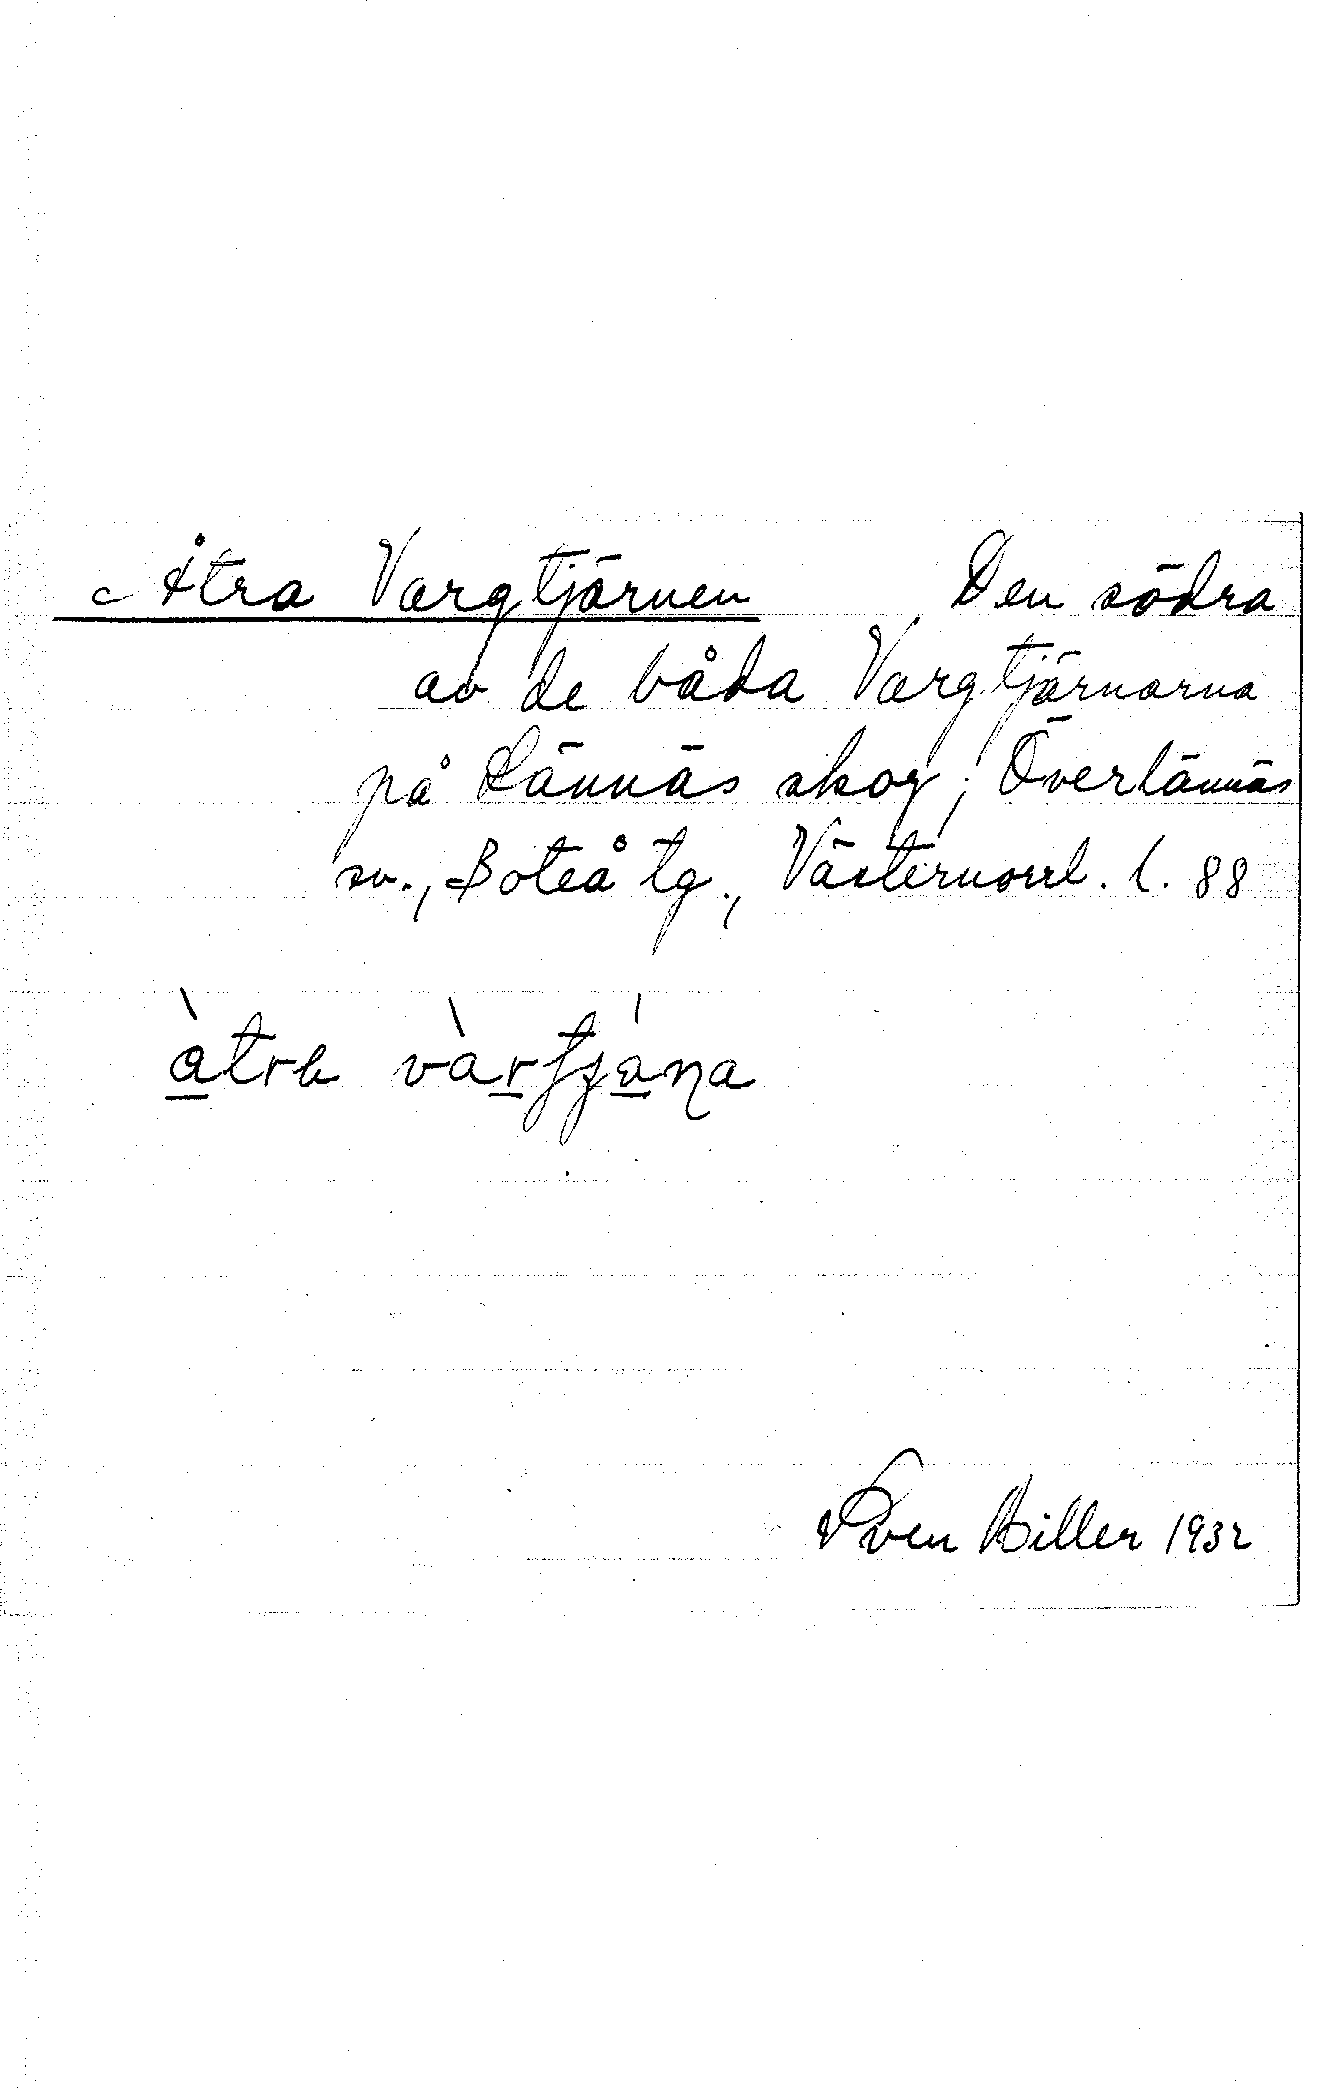 Åtra Vargtjärnen Den södra
av de båda Vargtjärnarna
på Lännäs skog; Överlännäs
sn., Boteå tg., Västernorrl. l. 88
àtrɐ vàrtjána
Sven Hiller 1932